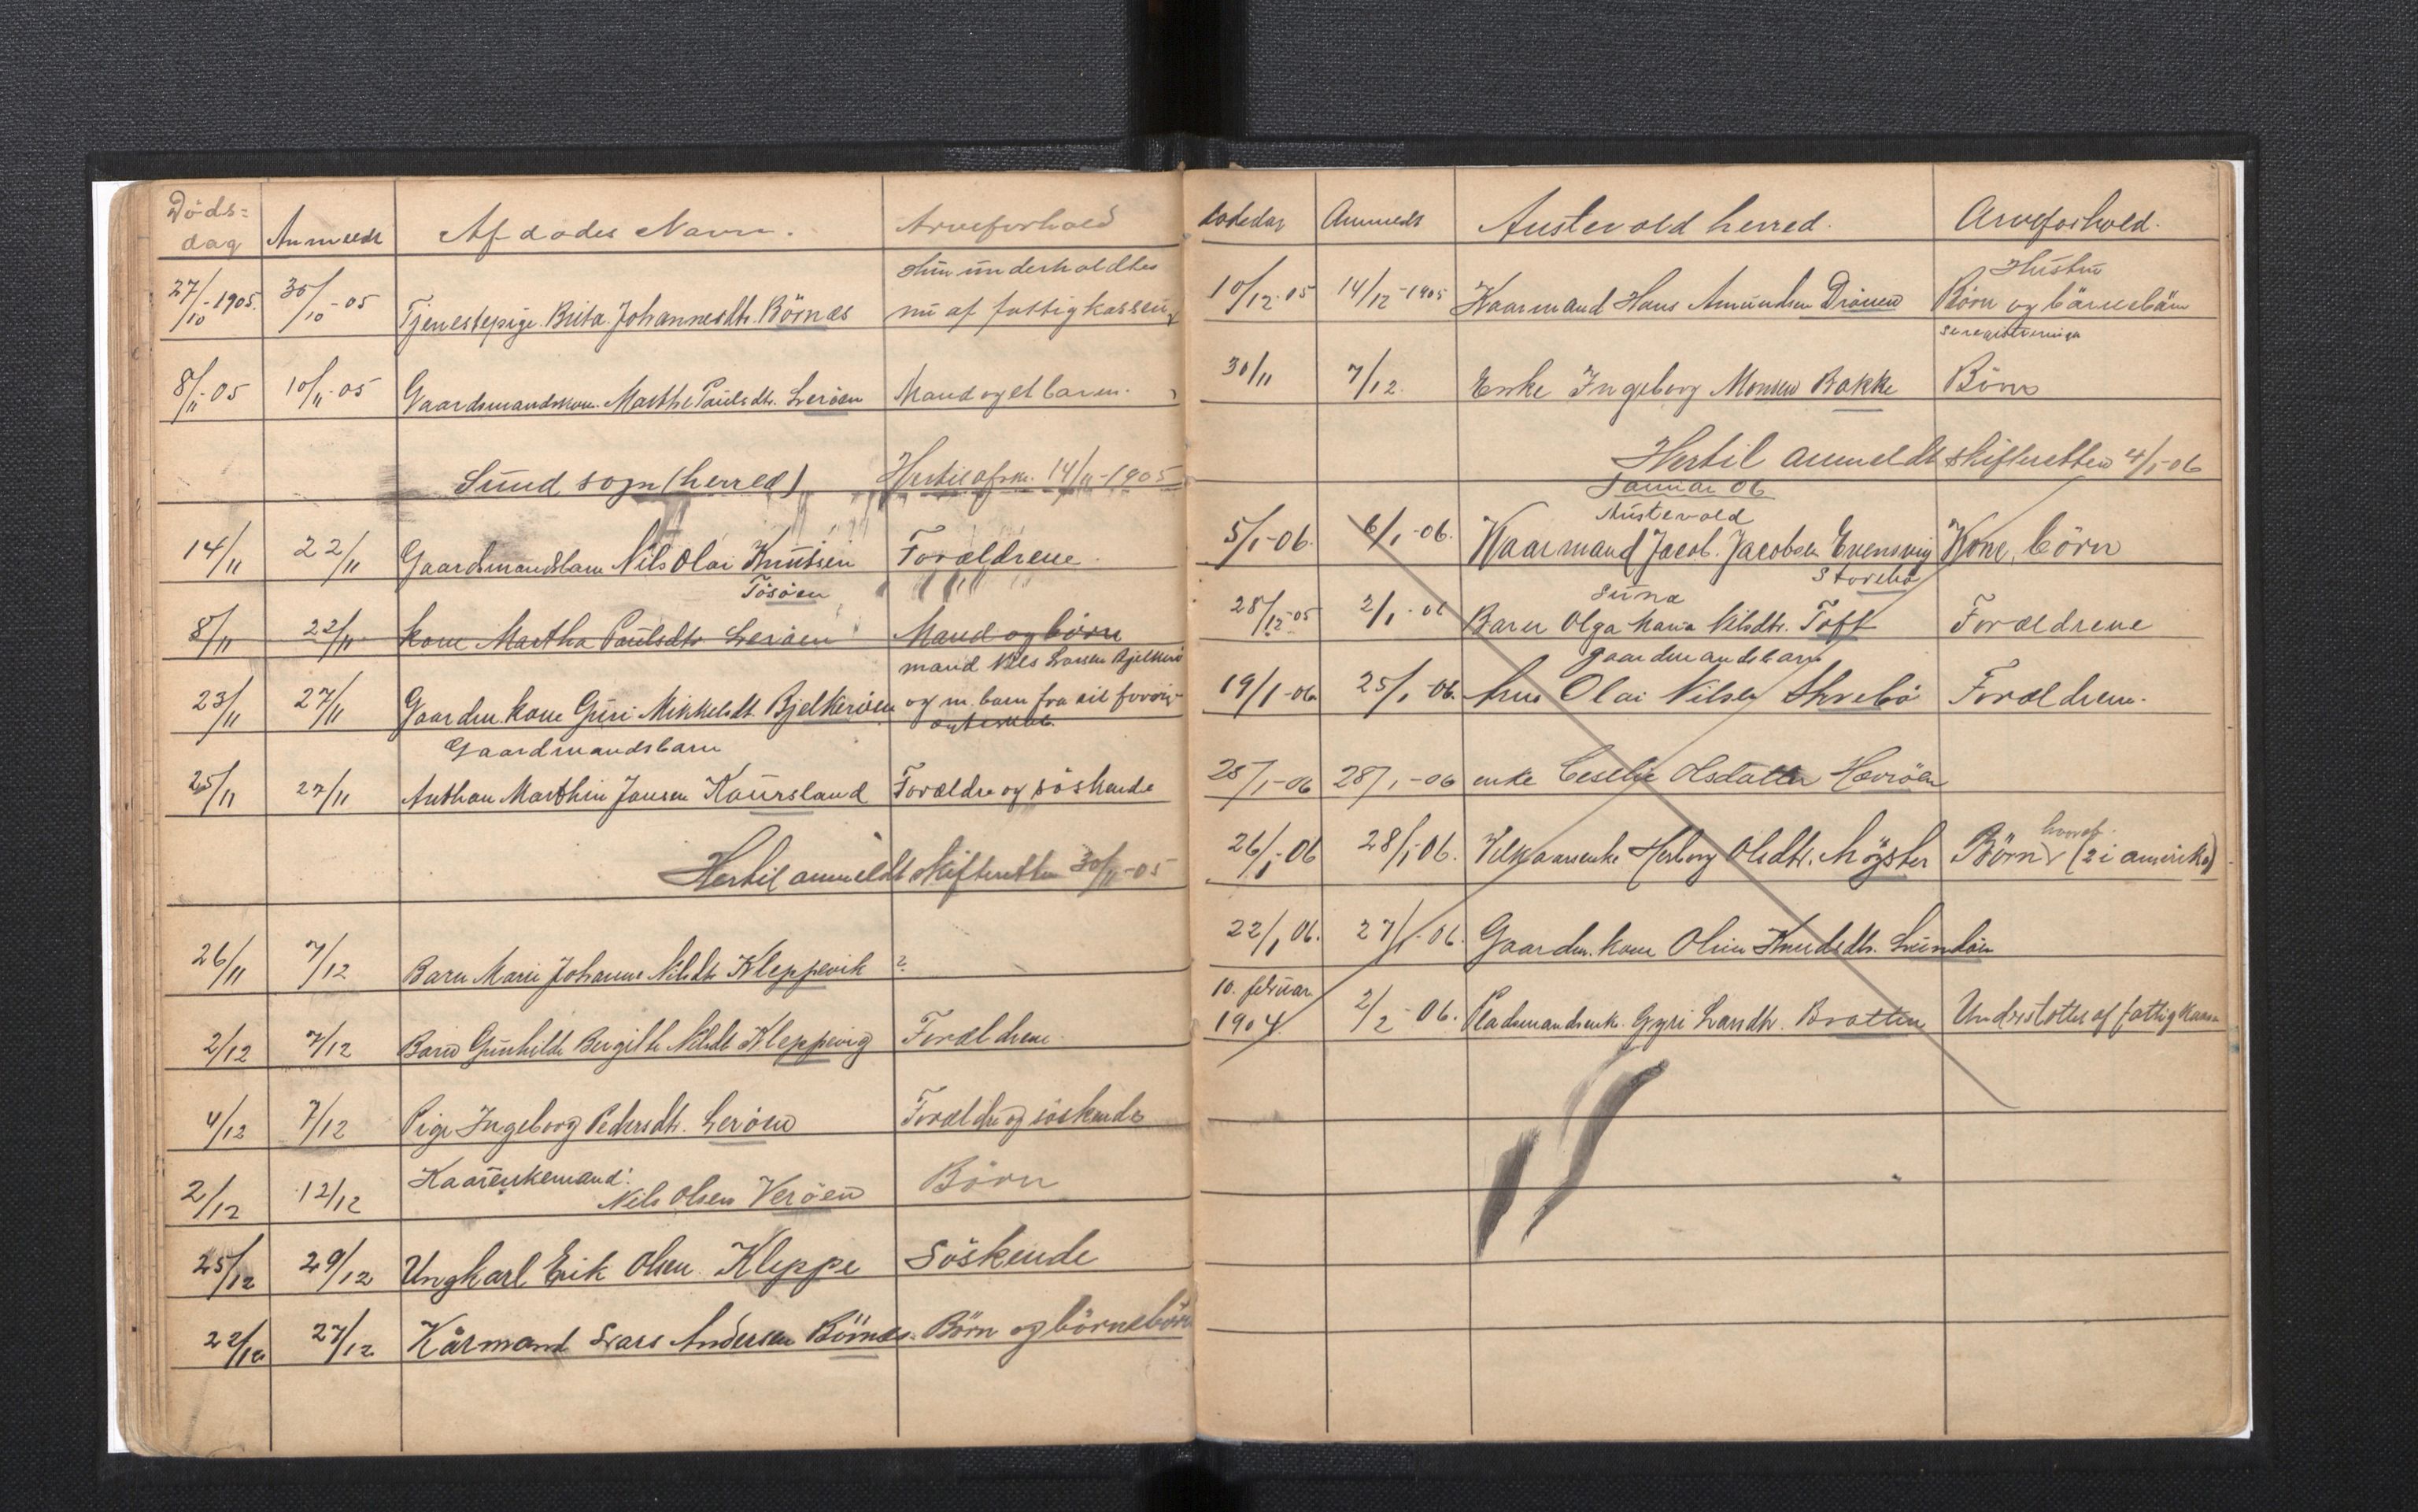 Döds-
dag Anmeldt Afdödes Navn. Arveforhold
Hun underholdtes
27/10-1905. 30/10-05 Tjenestepige Brita Johannesdtr. Börnes nu af fattigkassen
8/11-05 10/11-05 Gaardmandskone Marthe Paulsdtr. Leröen Mand og et barn.
Sund sogn (herred) Hertil afsk. 14/11-1905
14/11 22/11 Gaardmandsbarn Nils Olai Knutsen Forældrene.
Tösöen
8/11 22/11 kone Martha Paulsdtr Leröen Mand og börn
mand Nils Larsen Bjelkerö
23/11 27/11 Gaardm. kone Guri Mikkelsdt. Bjelkeröen og m. barn fra eit forrig
Gaardmandsbarn
25/11 27/11 Anthon Marthin Jansen Kaursland Forældre og söskende
Hertil anmeldt Skifteretten 30/11-05
26/11 7/12 Barn Marie Johanne Nilsdtr Kleppevik ?
2/12 7/12 Barn Gunhilde Bergitte Nilsdt Kleppevig Forældrene.
4/12 7/12 Pige Ingeborg Pedersdtr. Leröen Forældre og söskende
Kaarenkemand:
2/12 12/12 Nils Olsen Veröen Börn
25/12 29/12 Ungkarl Erik Olsen Kleppe Söskende
22/12 27/12 Kårmand Lars Andersen Börnes. Börn og börnebörn
dödsdag Anmeldt Austevold herred. Arveforhold.
Hustru
10/12-05 14/12-1905 Kaarmand Hans Amundsen Drönen Börn og barnebarn
se registreringen
30/11 7/12. Enke Ingeborg Monsen Bakke Börn
Hertil anmeldt skifteretten 4/1-06
Januar 06
Austevold
5/1-06. 6/1-06. Kaarmand Jacob Jacobsen Evensvig Kone, börn
Storebö
Sund
28/12-05 2/1-06 Barn Olga Maria Nilsdtr. Toft Forældrene
gaardmandsbarn
19/1-06 25/1-06. Arne Olai Nilsen Storebö Forældrene.
25/1-06 28/1-06 enke Ceselie Olsdatter Hevröen
hvoraf
26/1-06 28/1-06. Vilkaarsenke Herborg Olsdtr. Möyster Börn (2 i amerika)
22/1 06. 27/1-06. Gaardm. kone Oline Knudsdtr. Lundöen
10. februar
1904 2/2-06. Pladsmandsenk. Gyri Larsdtr. Bratten Understöttes af fattigkassen